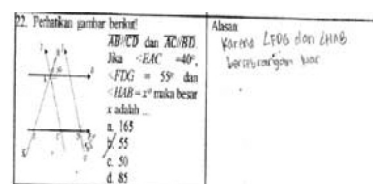 22. Perhatikan gambar berikut!
AB//CD dan AC//BD.
Jika <EAC =40°,
<FDG = 55° dan
<HAB = x° maka besar
x adalah ...
a. 165
b. 55
c. 50
d. 85
Alasan
Karena ∠FDG dan ∠HAB
berseberangan luar